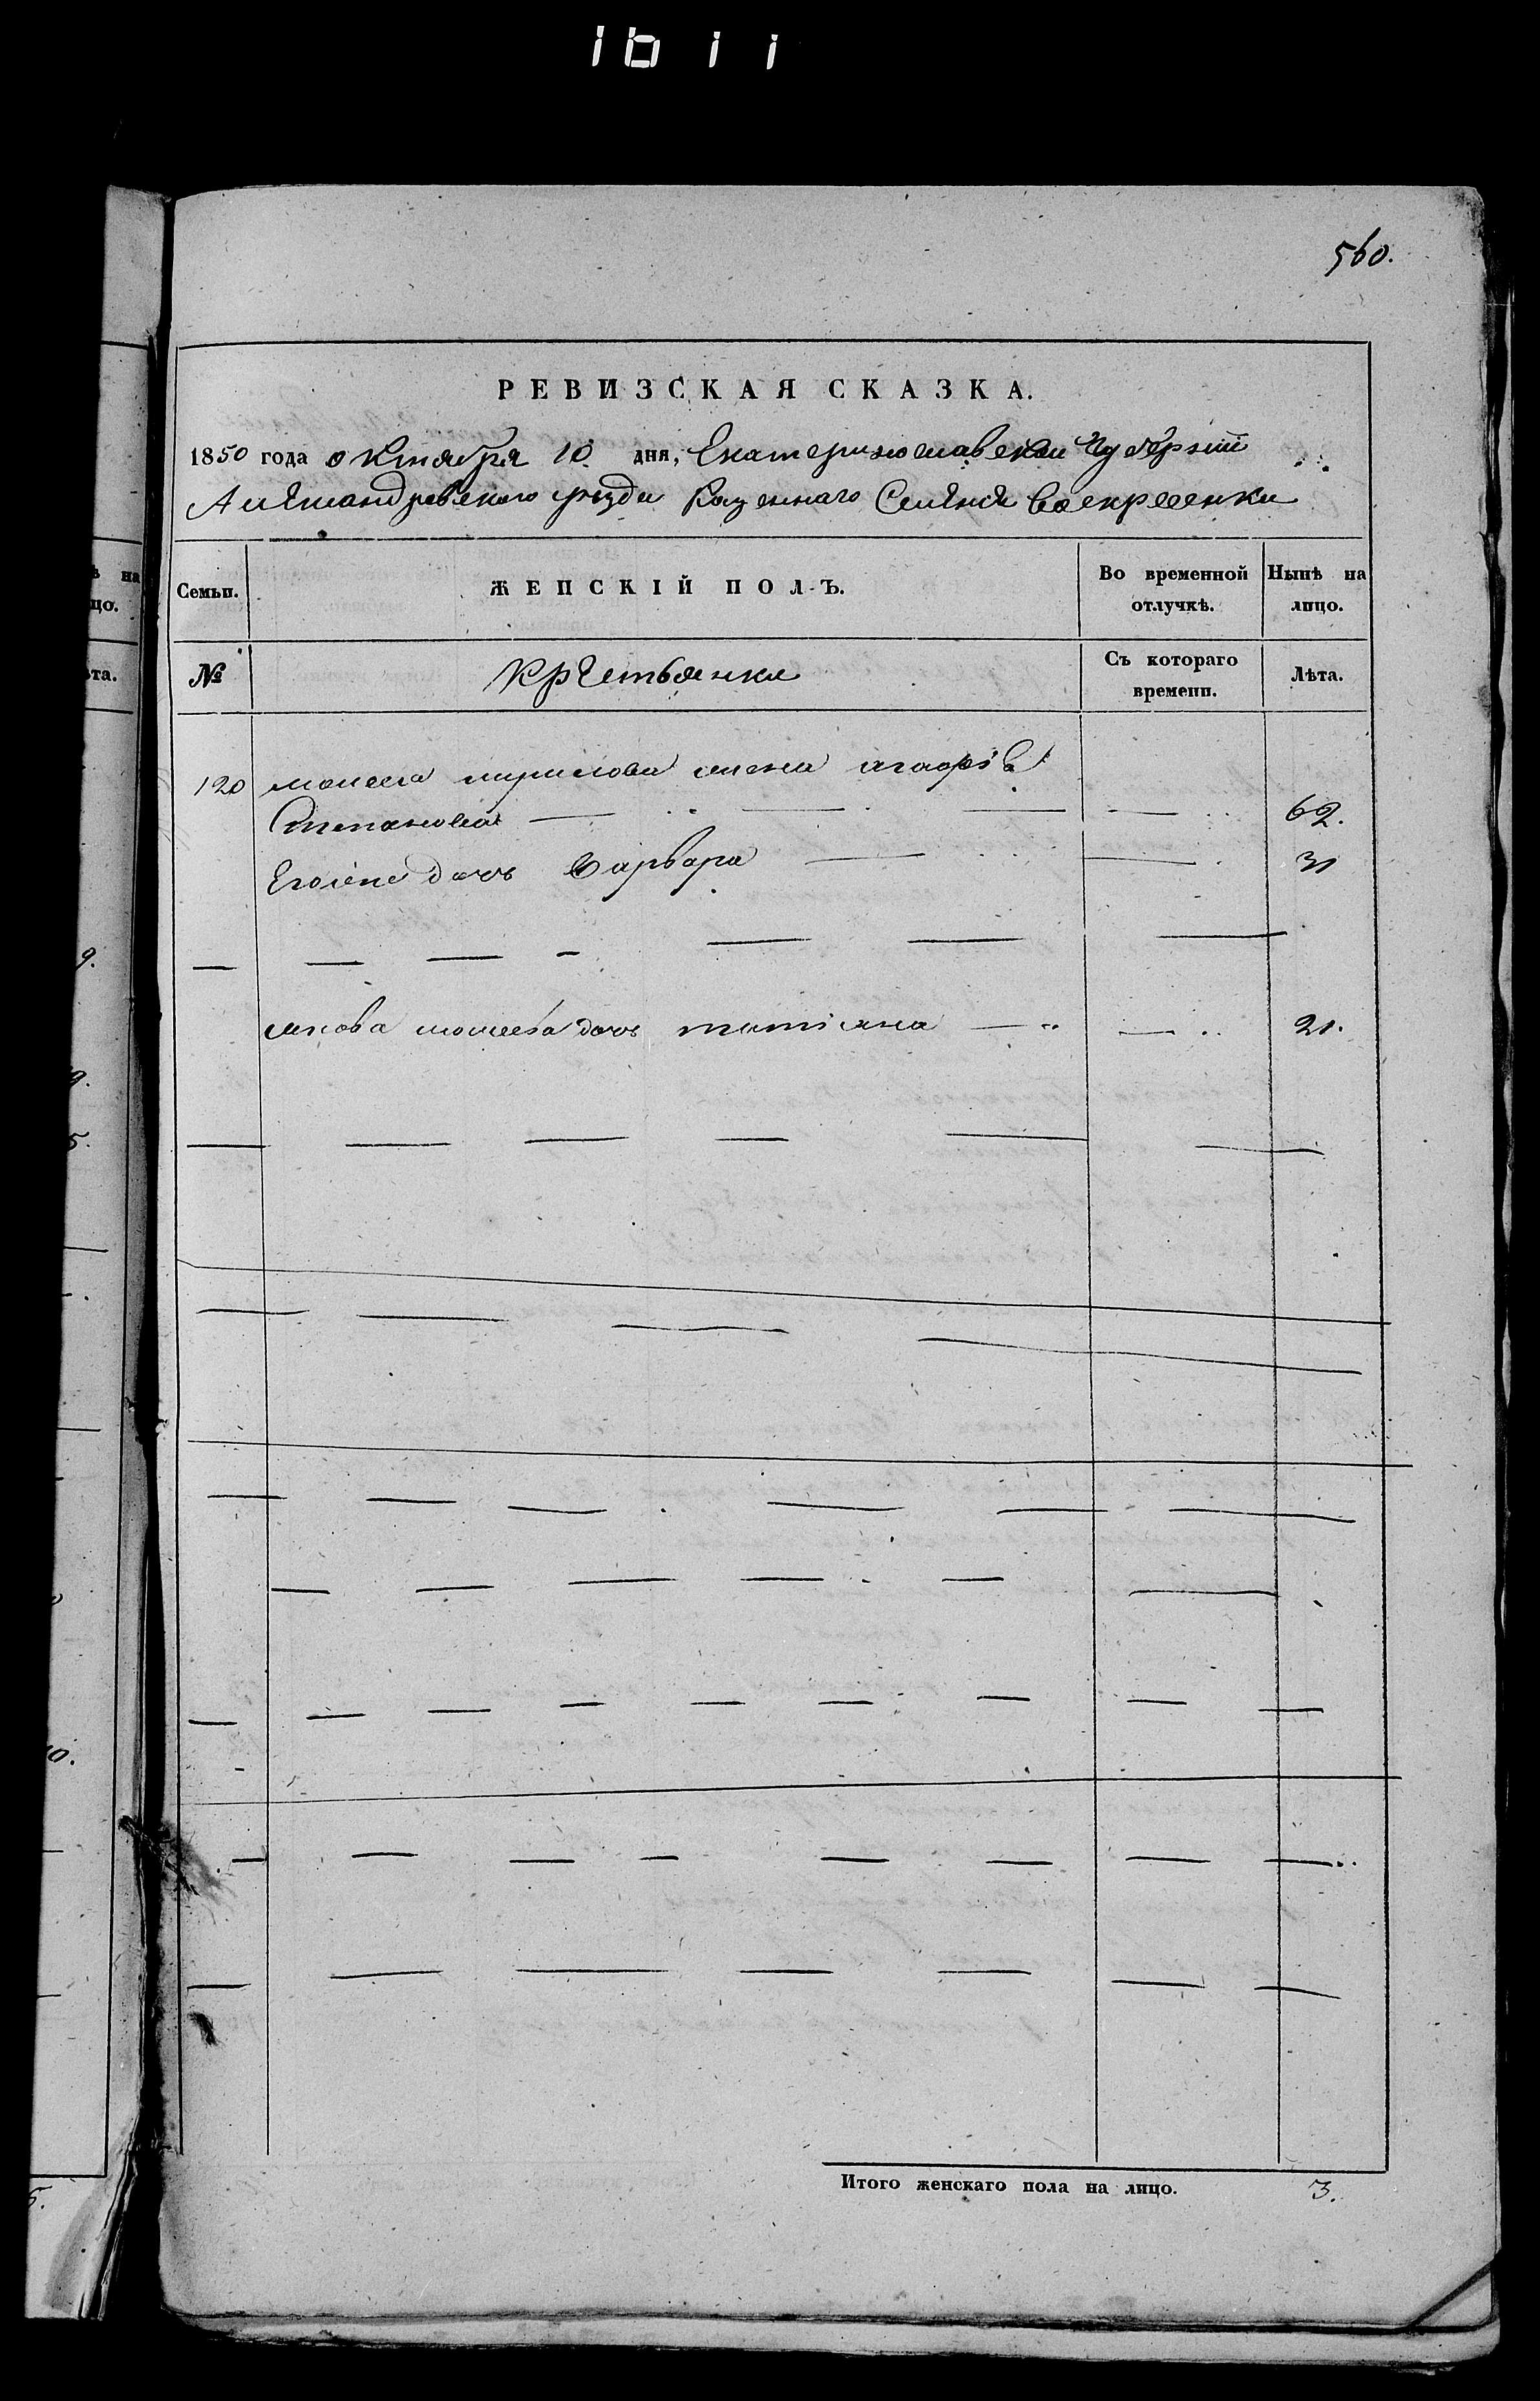 1611
560.
РЕВИЗСКАЯ СКАЗКА.
1850 года октября 10. дня, Екатеринославской Губернии
Александровского уезда Казеннаго Селения Воскресенки
ѣ на
цо.
Семьи. ЖЕНСКІЙ ПОЛЪ. Во временной отлучкѣ. Нынѣ на лицо.
ѣта.
№ Крестьянки Съ котораго времени. Лѣта.
120 жена
Степанова 62.
Егоже дочь Варвара 31
9.
дочь татіяна 21.
9.
5.
0.
Итого женскаго пола на лицо. 3.
5.